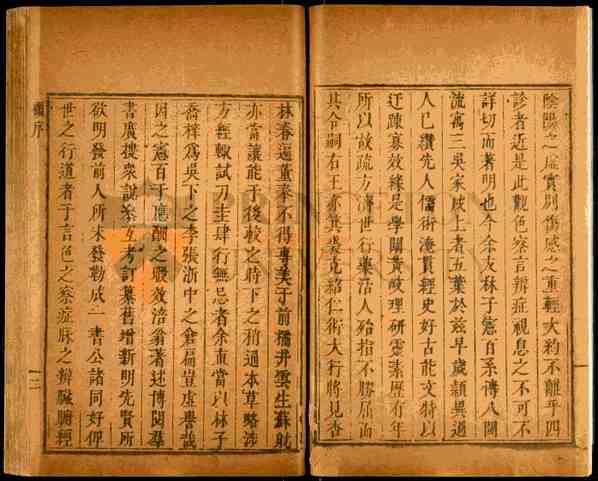 陰陽之虛實別傷感之重輕大約不離乎四
診者近是此觀色察言辨症視息之不可不
詳切而著明也今余友林子憲百系傳八閩
流寓三吳家咸上者五葉於茲早歲穎異過
人已纘先人儒術淹貫經史好古能文特以
迂疎寡效緣是學闢黃岐理研靈素歷有年
所以故疏方濟世行藥活人殆指不勝屈而
其令嗣右王亦箕裘克紹仁術大行將見杏
林春遍董奉不得專美于前橘井雲生蘇躭
亦當讓能于後較之時下之稍通本草略涉
方經輒試刀圭肆行無忌者余直當以林子
喬梓為吳下之李張浙中之倉扁豈虛譽哉
因之憲百于應酬之暇效涪翁著述博閱羣
書廣搜衆說叅互考訂纂舊增新明先賢所
欲明發前人所未發勒成一書公諸同好俾
世之行道者于言色之察症脉之辨臟腑經
序 二